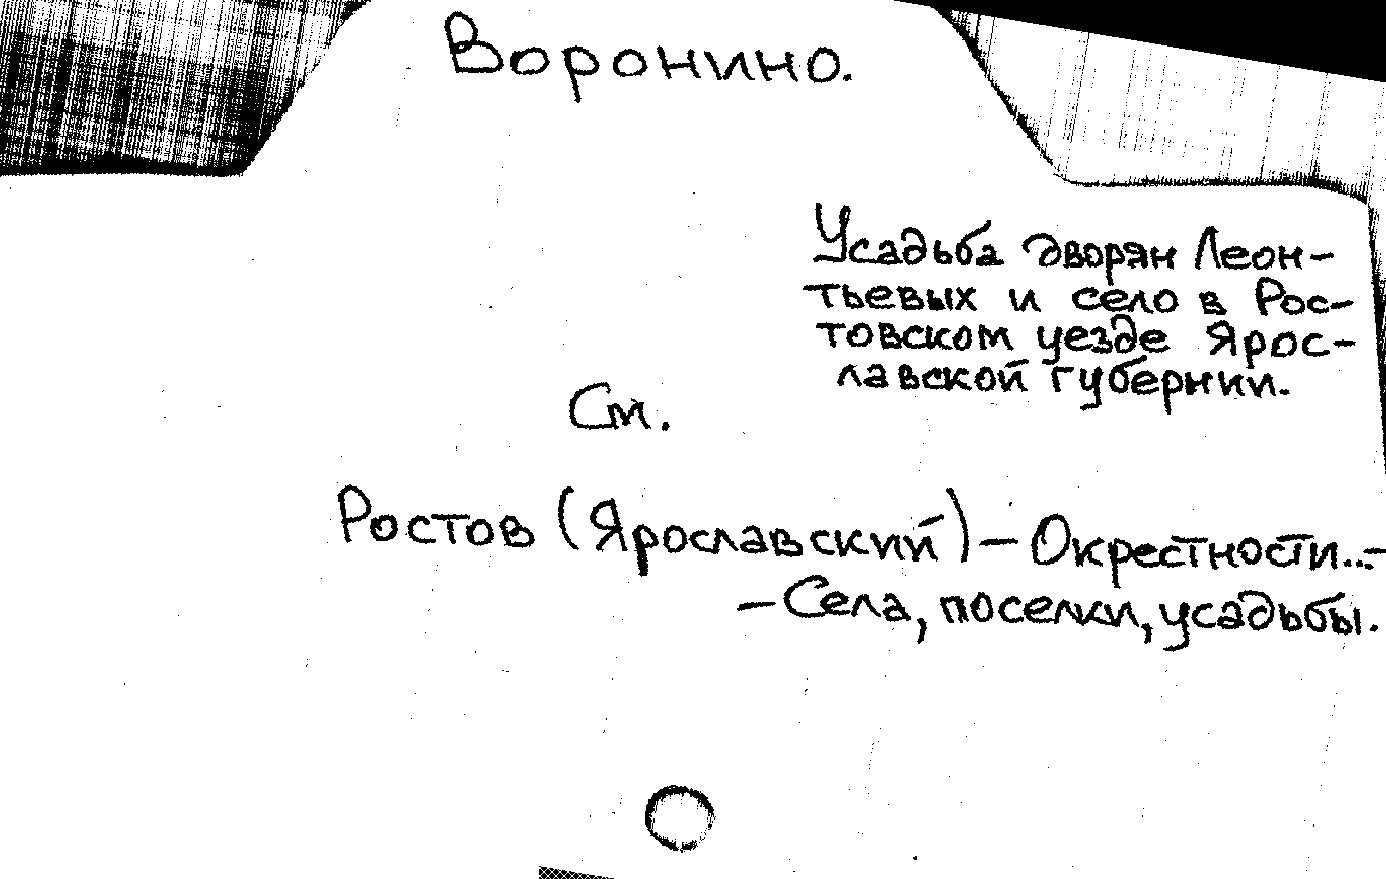 Воронино.
Усадьба дворян Леон-
тьевых и село в Рос-
товском уезде Ярос-
лавской губернии.
См.
Ростов (Ярославский) — Окрестности...-
— Села, поселки, усадьбы.